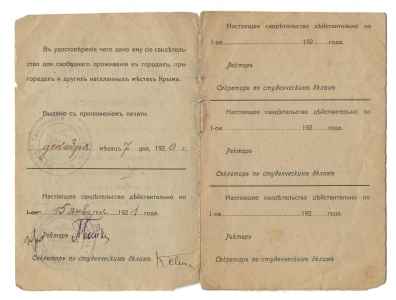 Въ удостовѣреніе чего дано ему сіе свидѣтель-
ство для свободнаго проживанія въ городахъ, при-
городахъ и другихъ населенныхъ мѣстахъ Крыма.
Выдано съ приложеніемъ печати.
декабря мѣсяцъ 7 дня, 1920 г.
Настоящее свидѣтельство дѣйствительно по
1-ое 15 января 1921 года.
Ректоръ
Секретарь по студенческимъ дѣламъ
Настоящее свидѣтельство дѣйствительно по
1-ое 192 года.
Ректоръ
Секретарь по студенческимъ дѣламъ
Настоящее свидѣтельство дѣйствительно по
1-ое 192 года.
Ректоръ
Секретарь по студенческимъ дѣламъ
Настоящее свидѣтельство дѣйствительно по
1-ое 192 года.
Ректоръ
Секретарь по студенческимъ дѣламъ